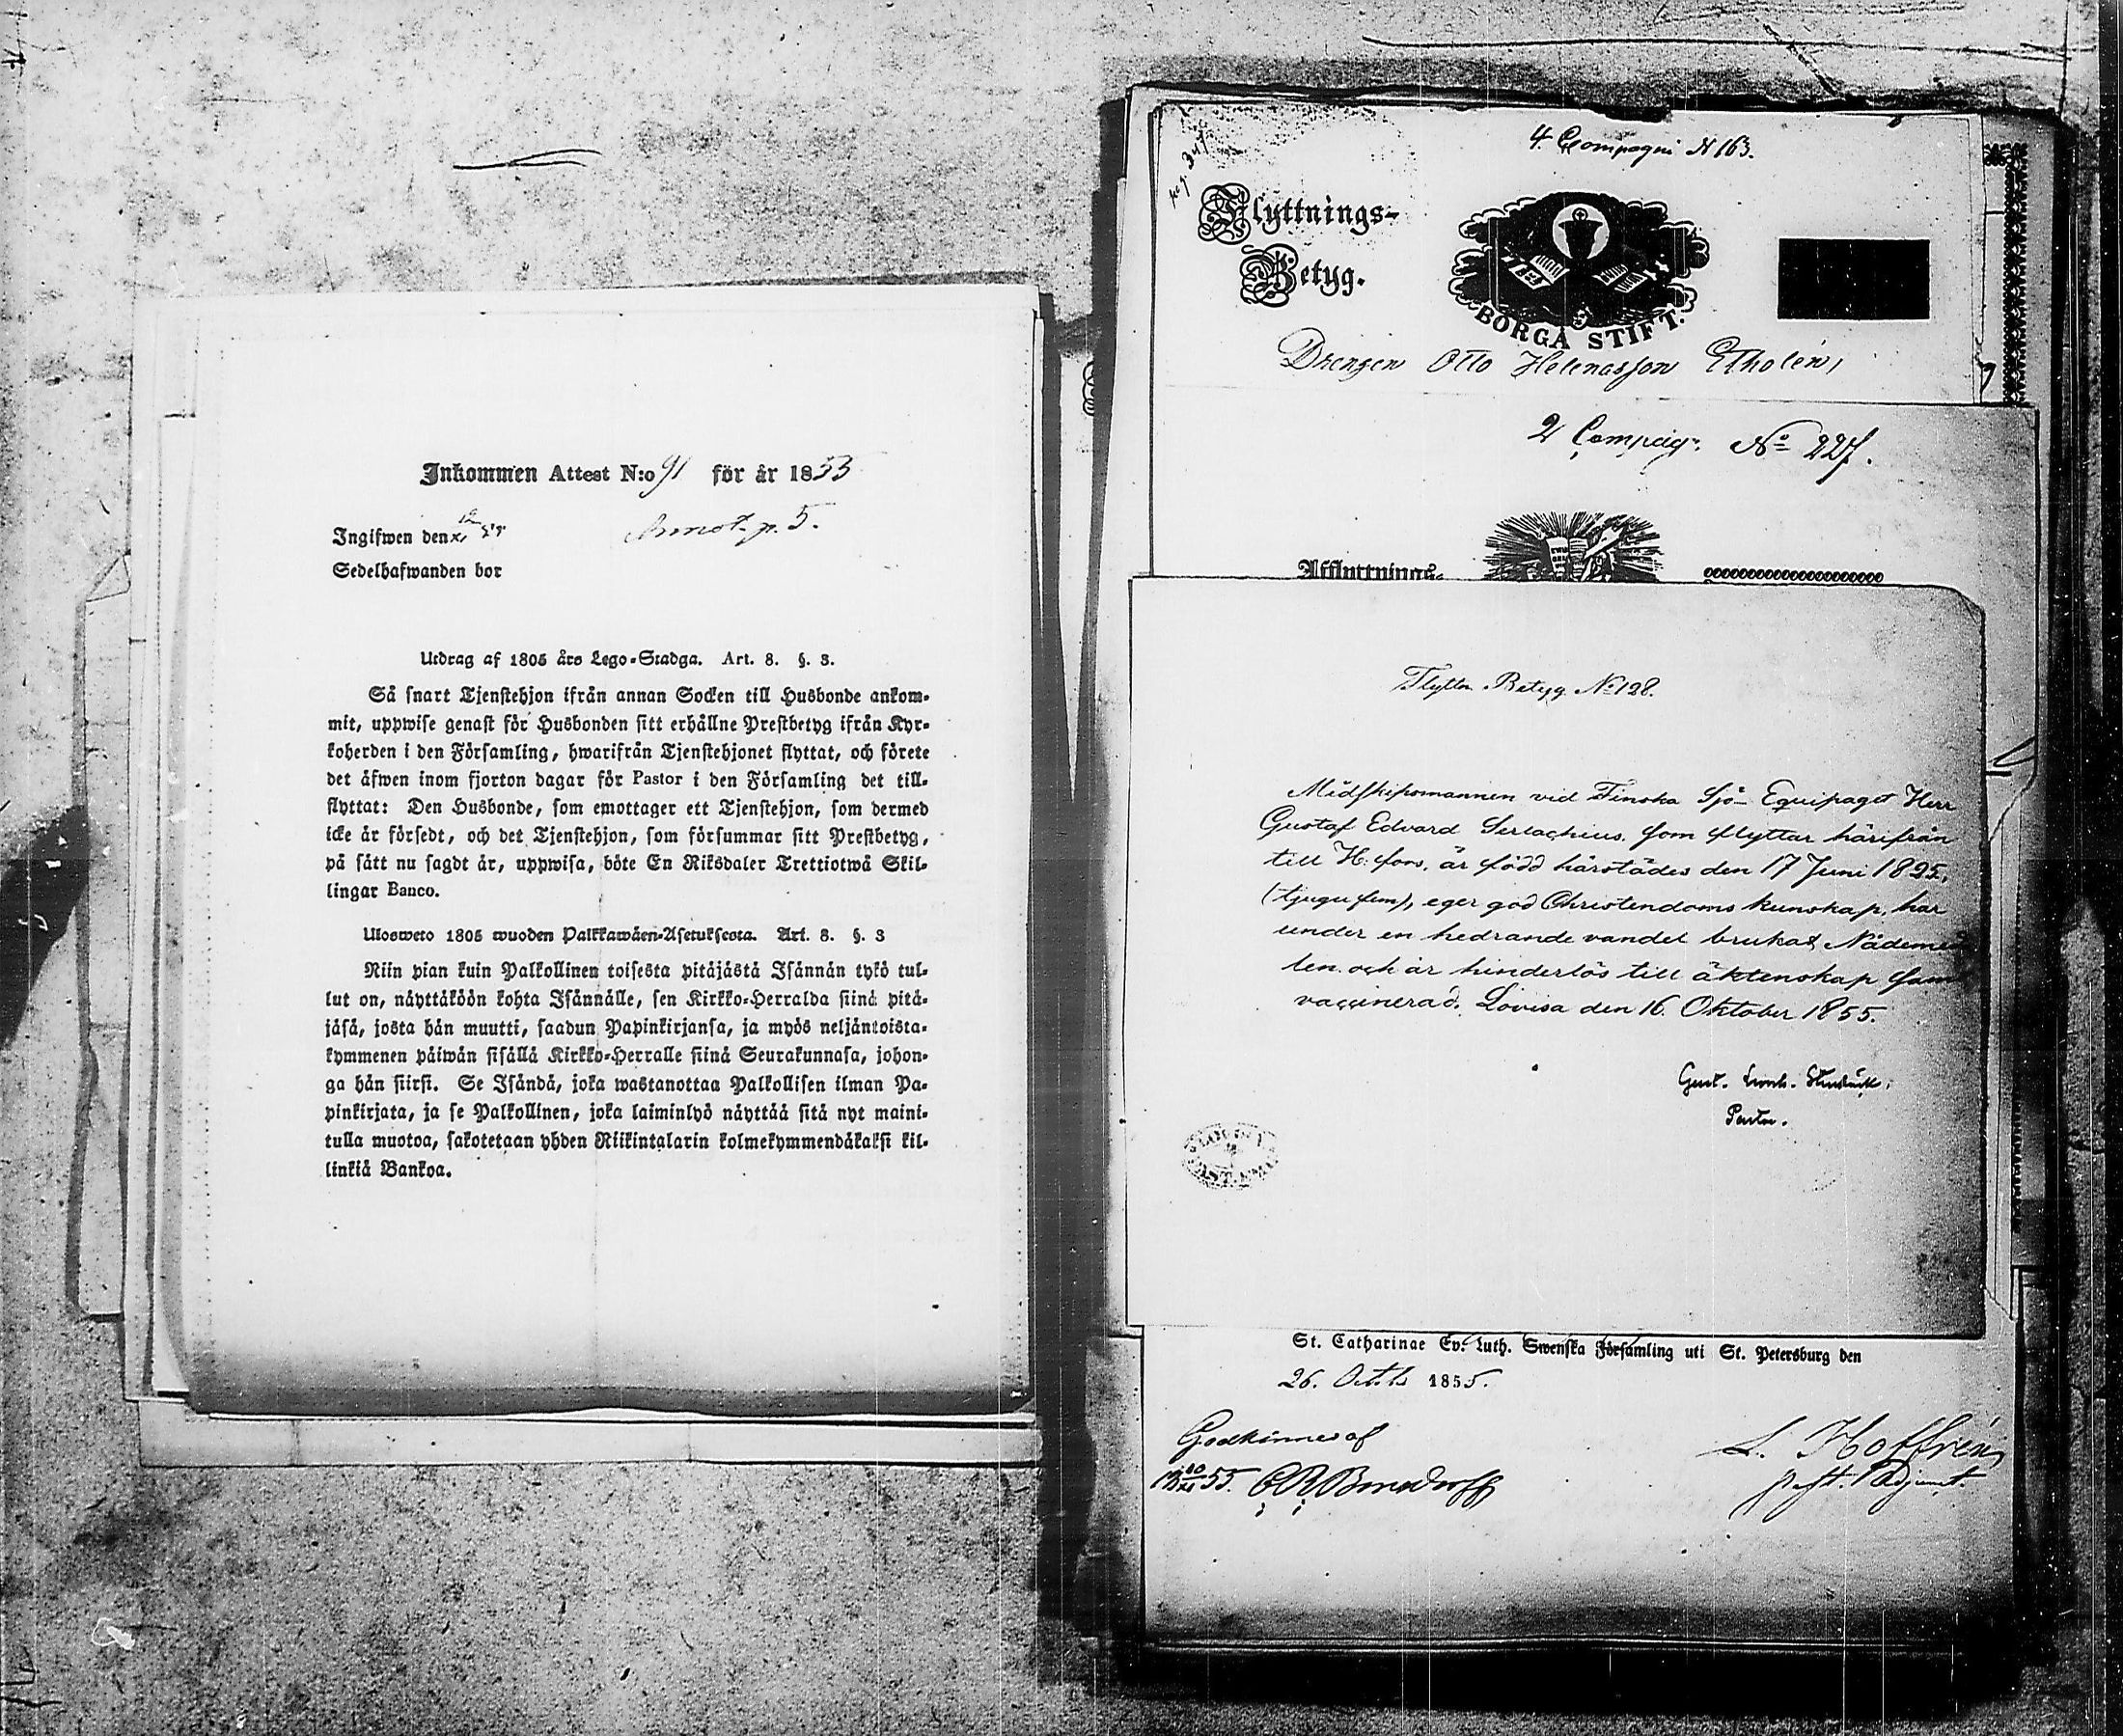 Inkommen Attest N:o 91 för år 1855
Annot. p. 5.
Ingifwen den
Sedelhafwanden bor
Utdrag af 1805 års Lego-Stadga. Art. 8. §. 3.
Så snart Tjenstehjon ifrån annan Socken till Husbonde ankom-
mit, uppwise genast för Husbonden sitt erhållne Prestbetyg ifrån Kyr-
koherden i den Församling, hwarifrån Tjenstehjonet flyttat, och förete
det äfwen inom fjorton dagar för Pastor i den Församling det till-
flyttat: Den Husbonde, som emottager ett Tjenstehjon, som dermed
icke är försedt, och det Tjenstehjon, som försummar sitt Prestbetyg,
på sätt nu sagdt är, uppwisa, böte En Riksdaler Trettiotwå Skil-
lingar Banco.
Ulosweto 1805 wuoden Palkkawäen-Asetuksesta. Art. 8. §. 3
Niin pian kuin Palkollinen toisesta pitäjästä Isännän tykö tul-
lut on, näyttäköön kohta Isännälle, sen Kirkko-Herralda siinä pitä-
jäsä, josta hän muutti, saadun Papinkirjansa, ja myös neljäntoista-
kymmenen päiwän sisällä Kirkko-Herralle siinä Seurakunnasa, johon-
ga hän siirsi. Se Isändä, joka wastanottaa Palkollisen ilman Pa-
pinkirjata, ja se Palkollinen, joka laiminlyö näyttää sitä nyt maini-
tulla muotoa, sakotetaan yhden Riikintalarin kolmekymmendäkaksi kil-
linkiä Bankoa.
4. Compagni N 163.
Flyttnings-
Betyg.
BORGÅ STIFT.
Drengen Otto Helenasson Etholén,
2 Compag: No 227.
Afflyttnings-
Flytta Betyg No 128.
Midshipsmannen vid Finska Sjö-Equipaget Herr
Gustaf Edvard Serlachius, som flyttar härifrån
till H:fors, är född härstädes den 17 Juni 1825,
(tjugufem), eger god Christendoms kunskap, har
under en hedrande vandel brukat Nådemed
len och är hinderlös till äktenskap sam
vaccinerad. Lovisa den 16. Oktober 1855.
Pastor.
St. Catharinae Ev. Luth. Swenska Församling uti St. Petersburg den
26. Octob 1855.
Godkännes af
L. Hoffrén
Adjunct.